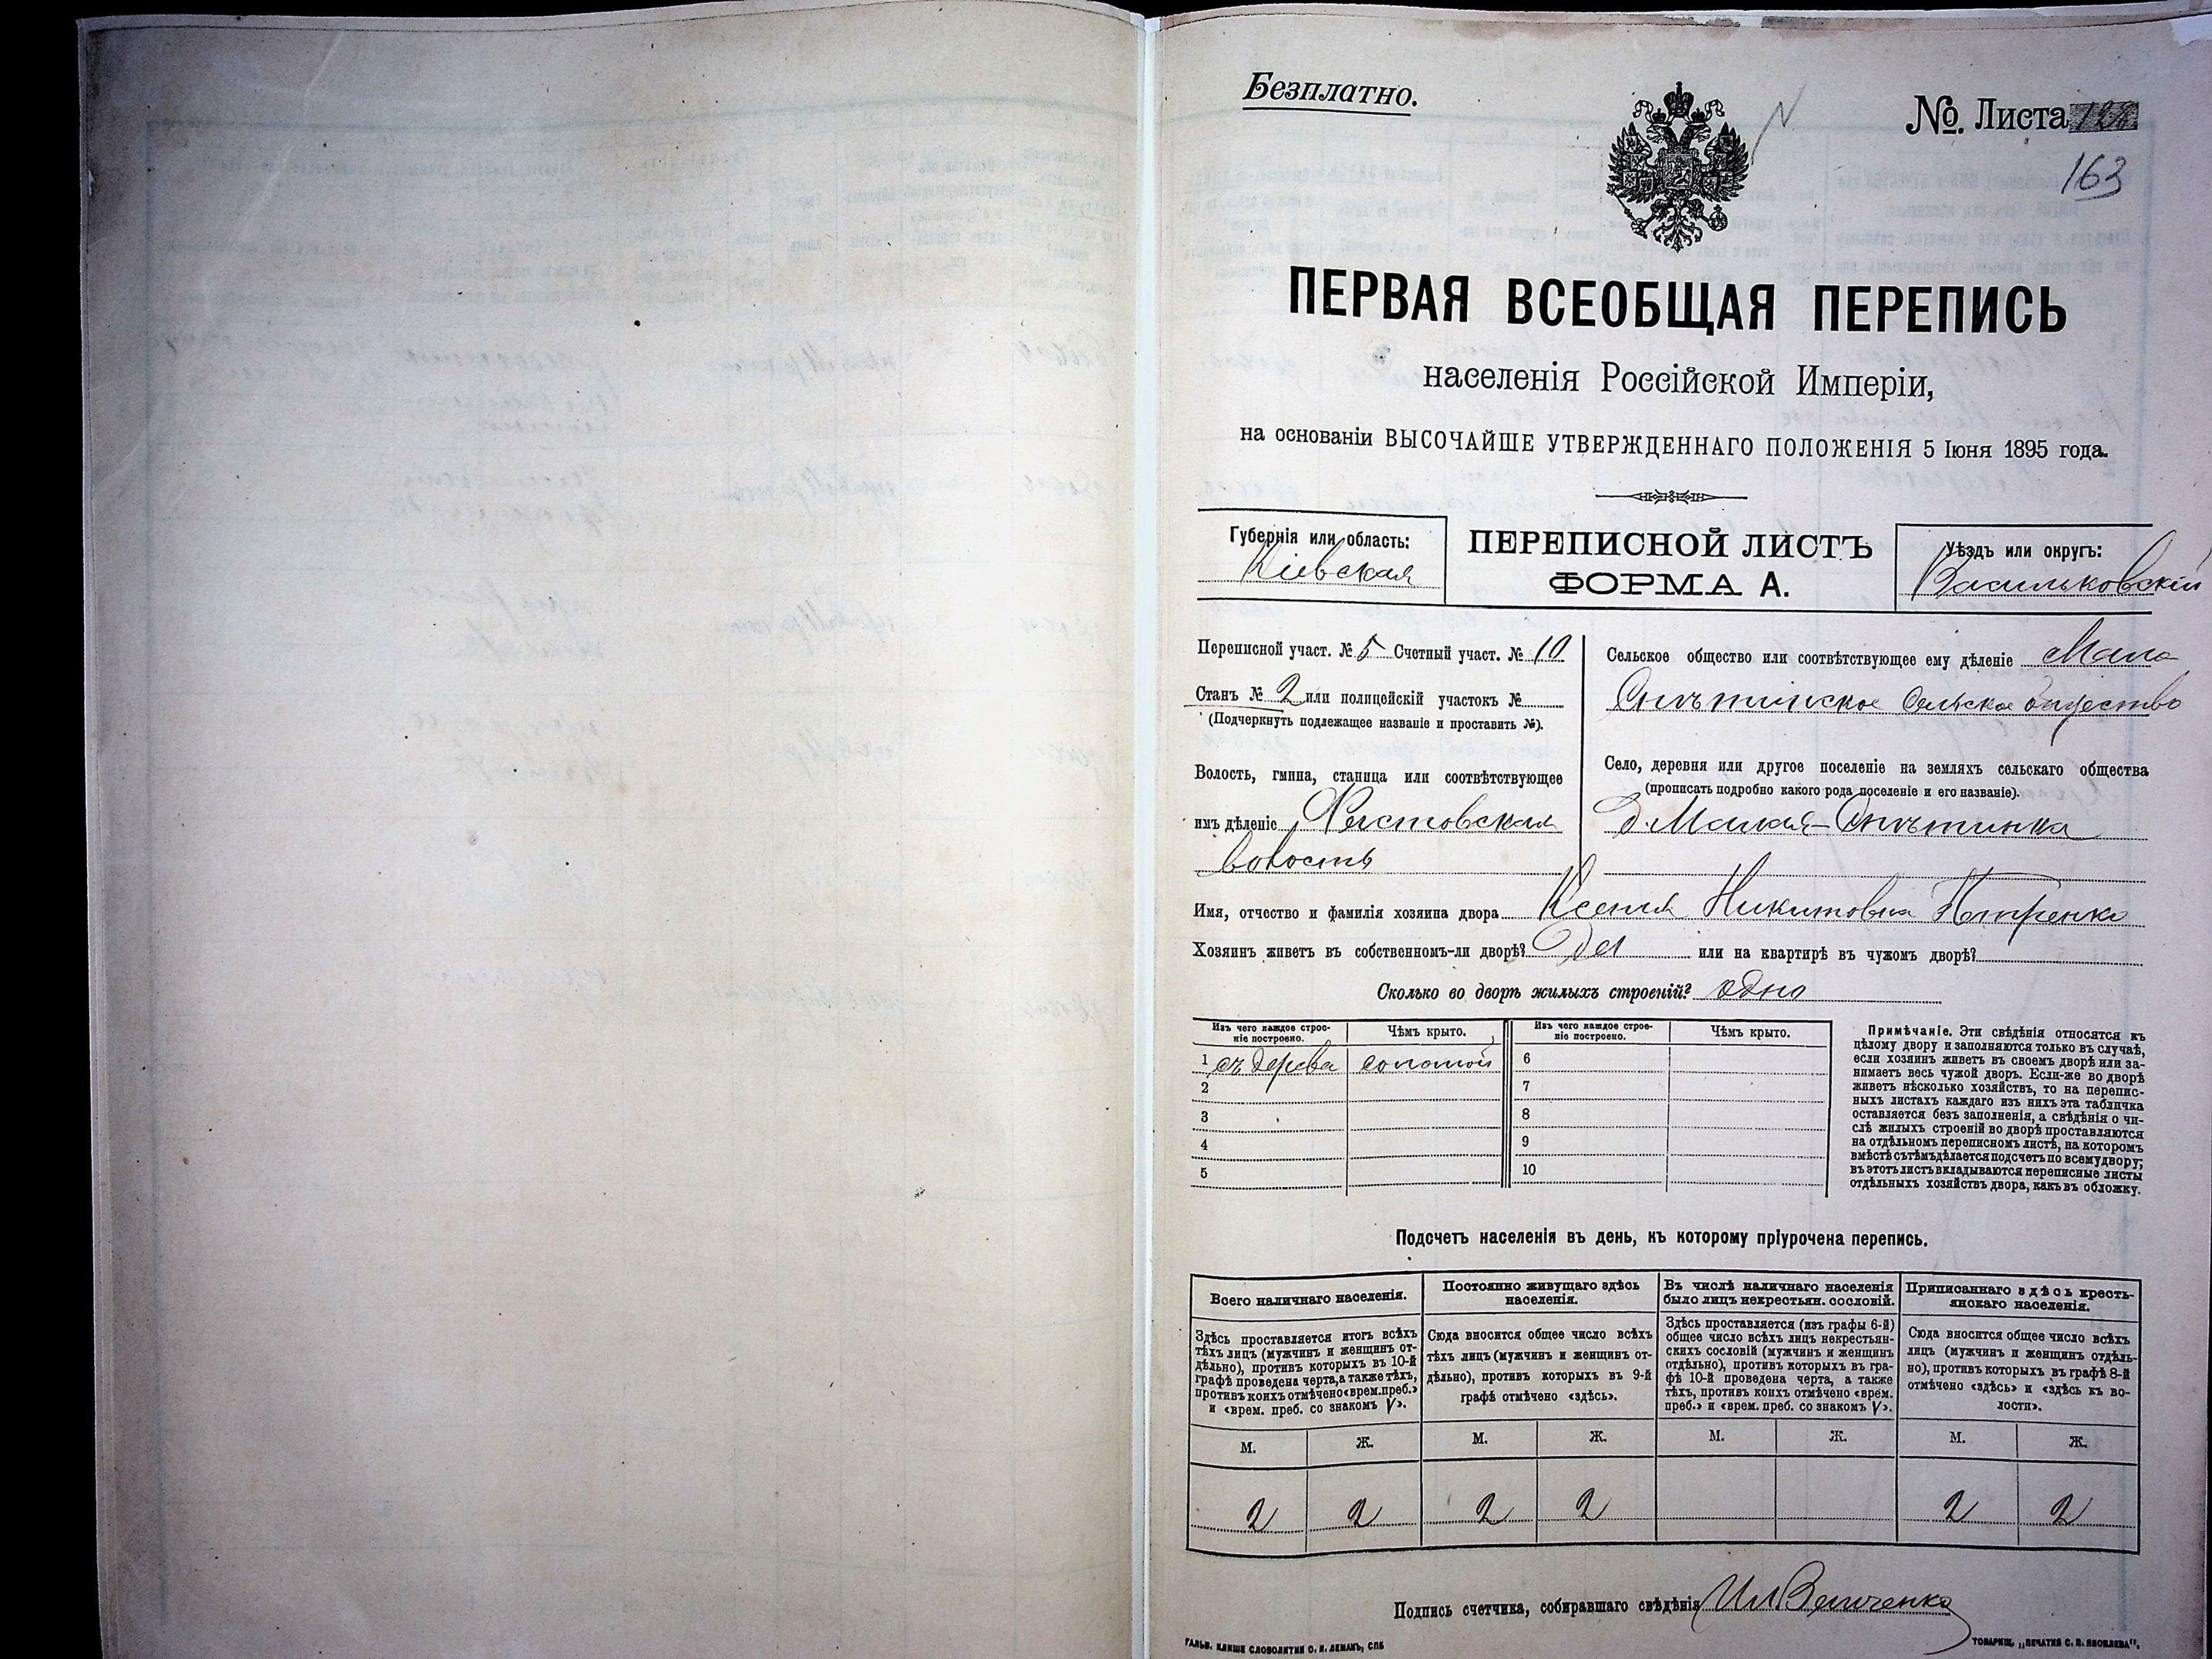 Безплатно.
№. Листа 128
163
ПЕРВАЯ ВСЕОБЩАЯ ПЕРЕПИСЬ
населенія Россійской Имперіи,
на основаніи ВЫСОЧАЙШЕ УТВЕРЖДЕННАГО ПОЛОЖЕНІЯ 5 Іюня 1895 года.
Губернія или область:
Кіевская
ПЕРЕПИСНОЙ ЛИСТЪ
ФОРМА А.
Уѣздъ или округъ:
Васильковскій
Переписной участ. № 5 Счетный участ. № 10
Станъ № 2 или полицейскій участокъ №
(Подчеркнуть подлежащее названіе и проставить №).
Волость, гмина, станица или соотвѣтствующее
имъ дѣленіе Фастовская
волость
Сельское общество или соотвѣтствующее ему дѣленіе Мало
Снѣтинское сельское общество
Село, деревня или другое поселеніе на земляхъ сельскаго общества
(прописать подробно какого рода поселеніе и его названіе).
д. Малая-Снѣтинка
Имя, отчество и фамилія хозяина двора Ксенія Никитовна Петренко
Хозяинъ живетъ въ собственномъ-ли дворѣ? Да или на квартирѣ въ чужомъ дворѣ?
Сколько во дворѣ жилыхъ строеній? одно
Изъ чего каждое строе-
ніе построено.
Чѣмъ крыто.
Изъ чего каждое строе-
ніе построено.
Чѣмъ крыто.
1 съ дерева соломой 6
2 7
3 8
4 9
5 10
Примѣчаніе. Эти свѣдѣнія относятся къ
цѣлому двору и заполняются только въ случаѣ,
если хозяинъ живетъ въ своемъ дворѣ или за-
нимаетъ весь чужой дворъ. Если-же во дворѣ
живетъ нѣсколько хозяйствъ, то на перепис-
ныхъ листахъ каждаго изъ нихъ эта табличка
оставляется безъ заполненія, а свѣдѣнія о чи-
слѣ жилыхъ строеній во дворѣ проставляются
на отдѣльномъ переписномъ листѣ, на которомъ
вмѣстѣ съ тѣмъ дѣлается подсчетъ по всему двору;
въ этотъ листъ вкладываются переписные листы
отдѣльныхъ хозяйствъ двора, какъ въ обложку.
Подсчетъ населенія въ день, къ которому пріурочена перепись.
Всего наличнаго населенія.
Здѣсь проставляется итогъ всѣхъ
тѣхъ лицъ (мужчинъ и женщинъ от-
дѣльно), противъ которыхъ въ 10-й
графѣ проведена черта, а также тѣхъ,
противъ коихъ отмѣчено «врем. преб.»
и «врем. преб. со знакомъ V».
М. Ж.
2 2
Постоянно живущаго здѣсь
населенія.
Сюда вносится общее число всѣхъ
тѣхъ лицъ (мужчинъ и женщинъ от-
дѣльно), противъ которыхъ въ 9-й
графѣ отмѣчено «здѣсь».
М. Ж.
2 2
Въ числѣ наличнаго населенія
было лицъ некрестьян. сословій.
Здѣсь проставляется (изъ графы 6-й)
общее число всѣхъ лицъ некрестьян-
скихъ сословій (мужчинъ и женщинъ
отдѣльно), противъ которыхъ въ гра-
фѣ 10-й проведена черта, а также
тѣхъ, противъ коихъ отмѣчено «врем.
преб.» и «врем. преб. со знакомъ V».
М. Ж.
Приписаннаго здѣсь кресть-
янскаго населенія.
Сюда вносится общее число всѣхъ
лицъ (мужчинъ и женщинъ отдѣль-
но), противъ которыхъ въ графѣ 8-й
отмѣчено «здѣсь» и «здѣсь къ во-
лости».
М. Ж.
2 2
Подпись счетчика, собиравшаго свѣдѣнія
ГАЛЬВ. КЛИШЕ СЛОВОЛИТНИ О. И. ЛЕМАНЪ, СПБ
ТОВАРИЩ. „ПЕЧАТНЯ С. П. ЯКОВЛЕВА“.